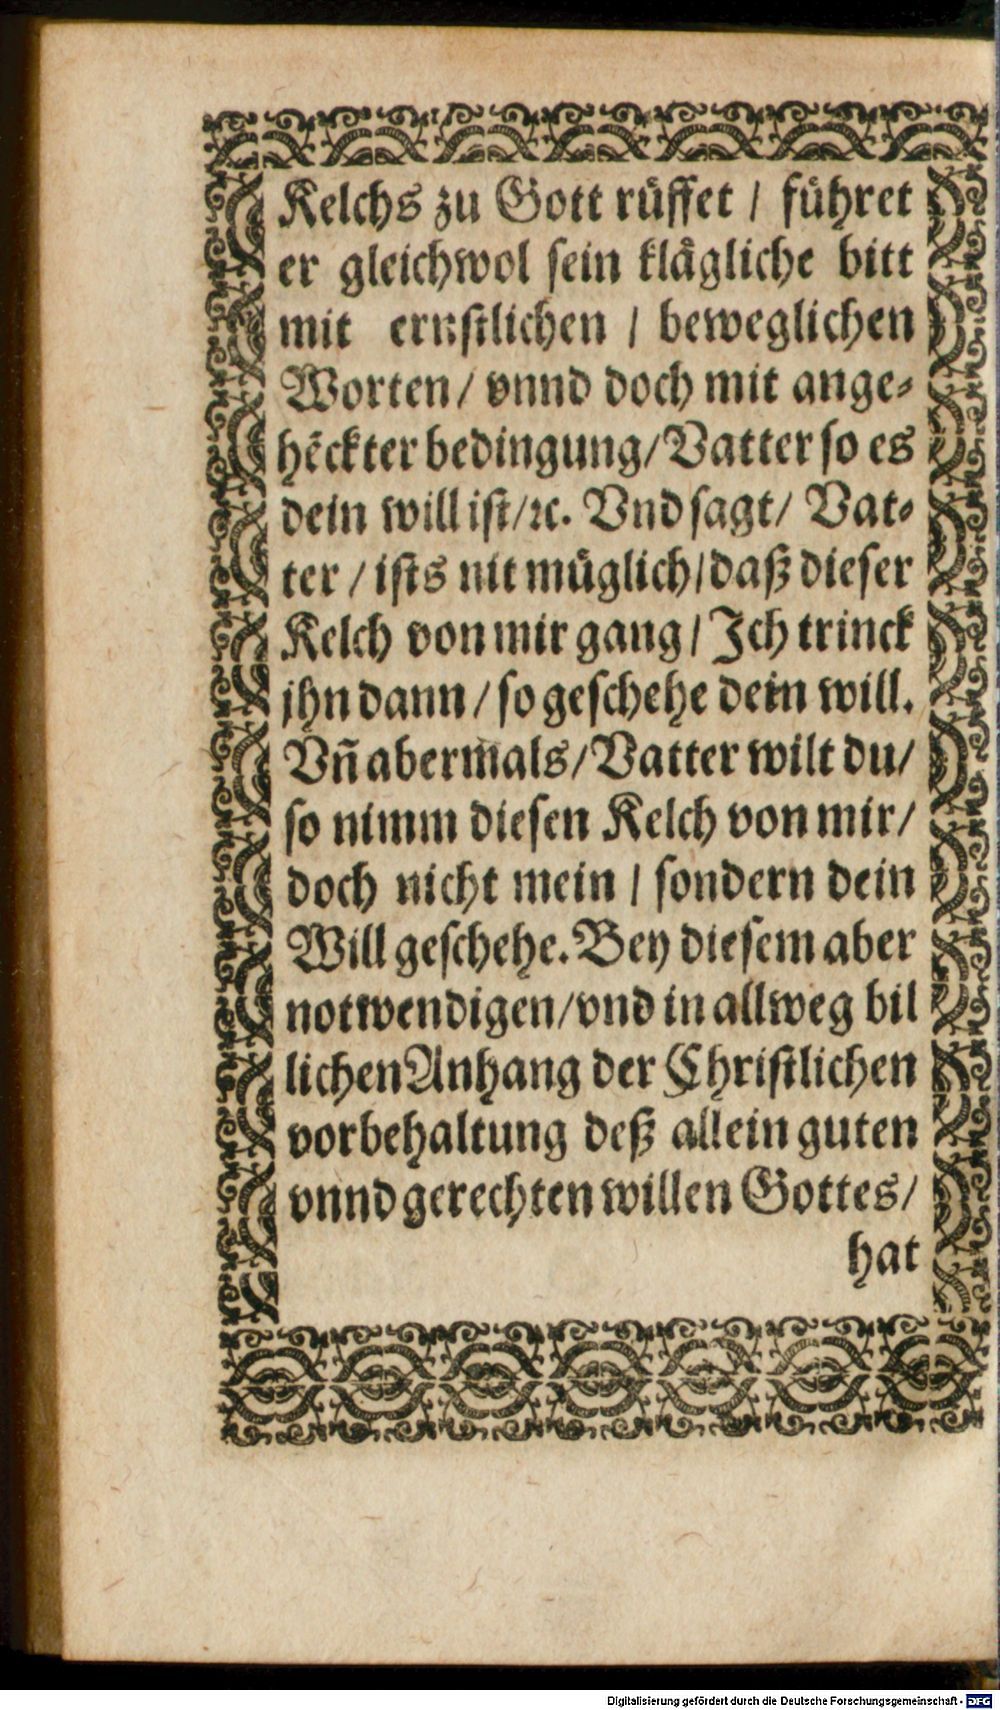 Kelchs zu Gott rüffet / führet
er gleichwol sein klägliche bitt
mit ernstlichen / beweglichen
Worten / vnnd doch mit ange-
hēckter bedingung / Vatter so es
dein will ist / ꝛc. Vnd sagt / Vat-
ter / ists nit müglich / daß dieser
Kelch von mir gang / Ich trinck
jhn dann / so geschehe dein will.
Vñ abermals / Vatter wilt du /
so nimm diesen Kelch von mir /
doch nicht mein / sondern dein
Will geschehe. Bey diesem aber
notwendigen / vnd in allweg bil
lichen Anhang der Christlichen
vorbehaltung deß allein guten
vnnd gerechten willen Gottes /
hat
Digitalisierung gefördert durch die Deutsche Forschungsgemeinschaft - DFG